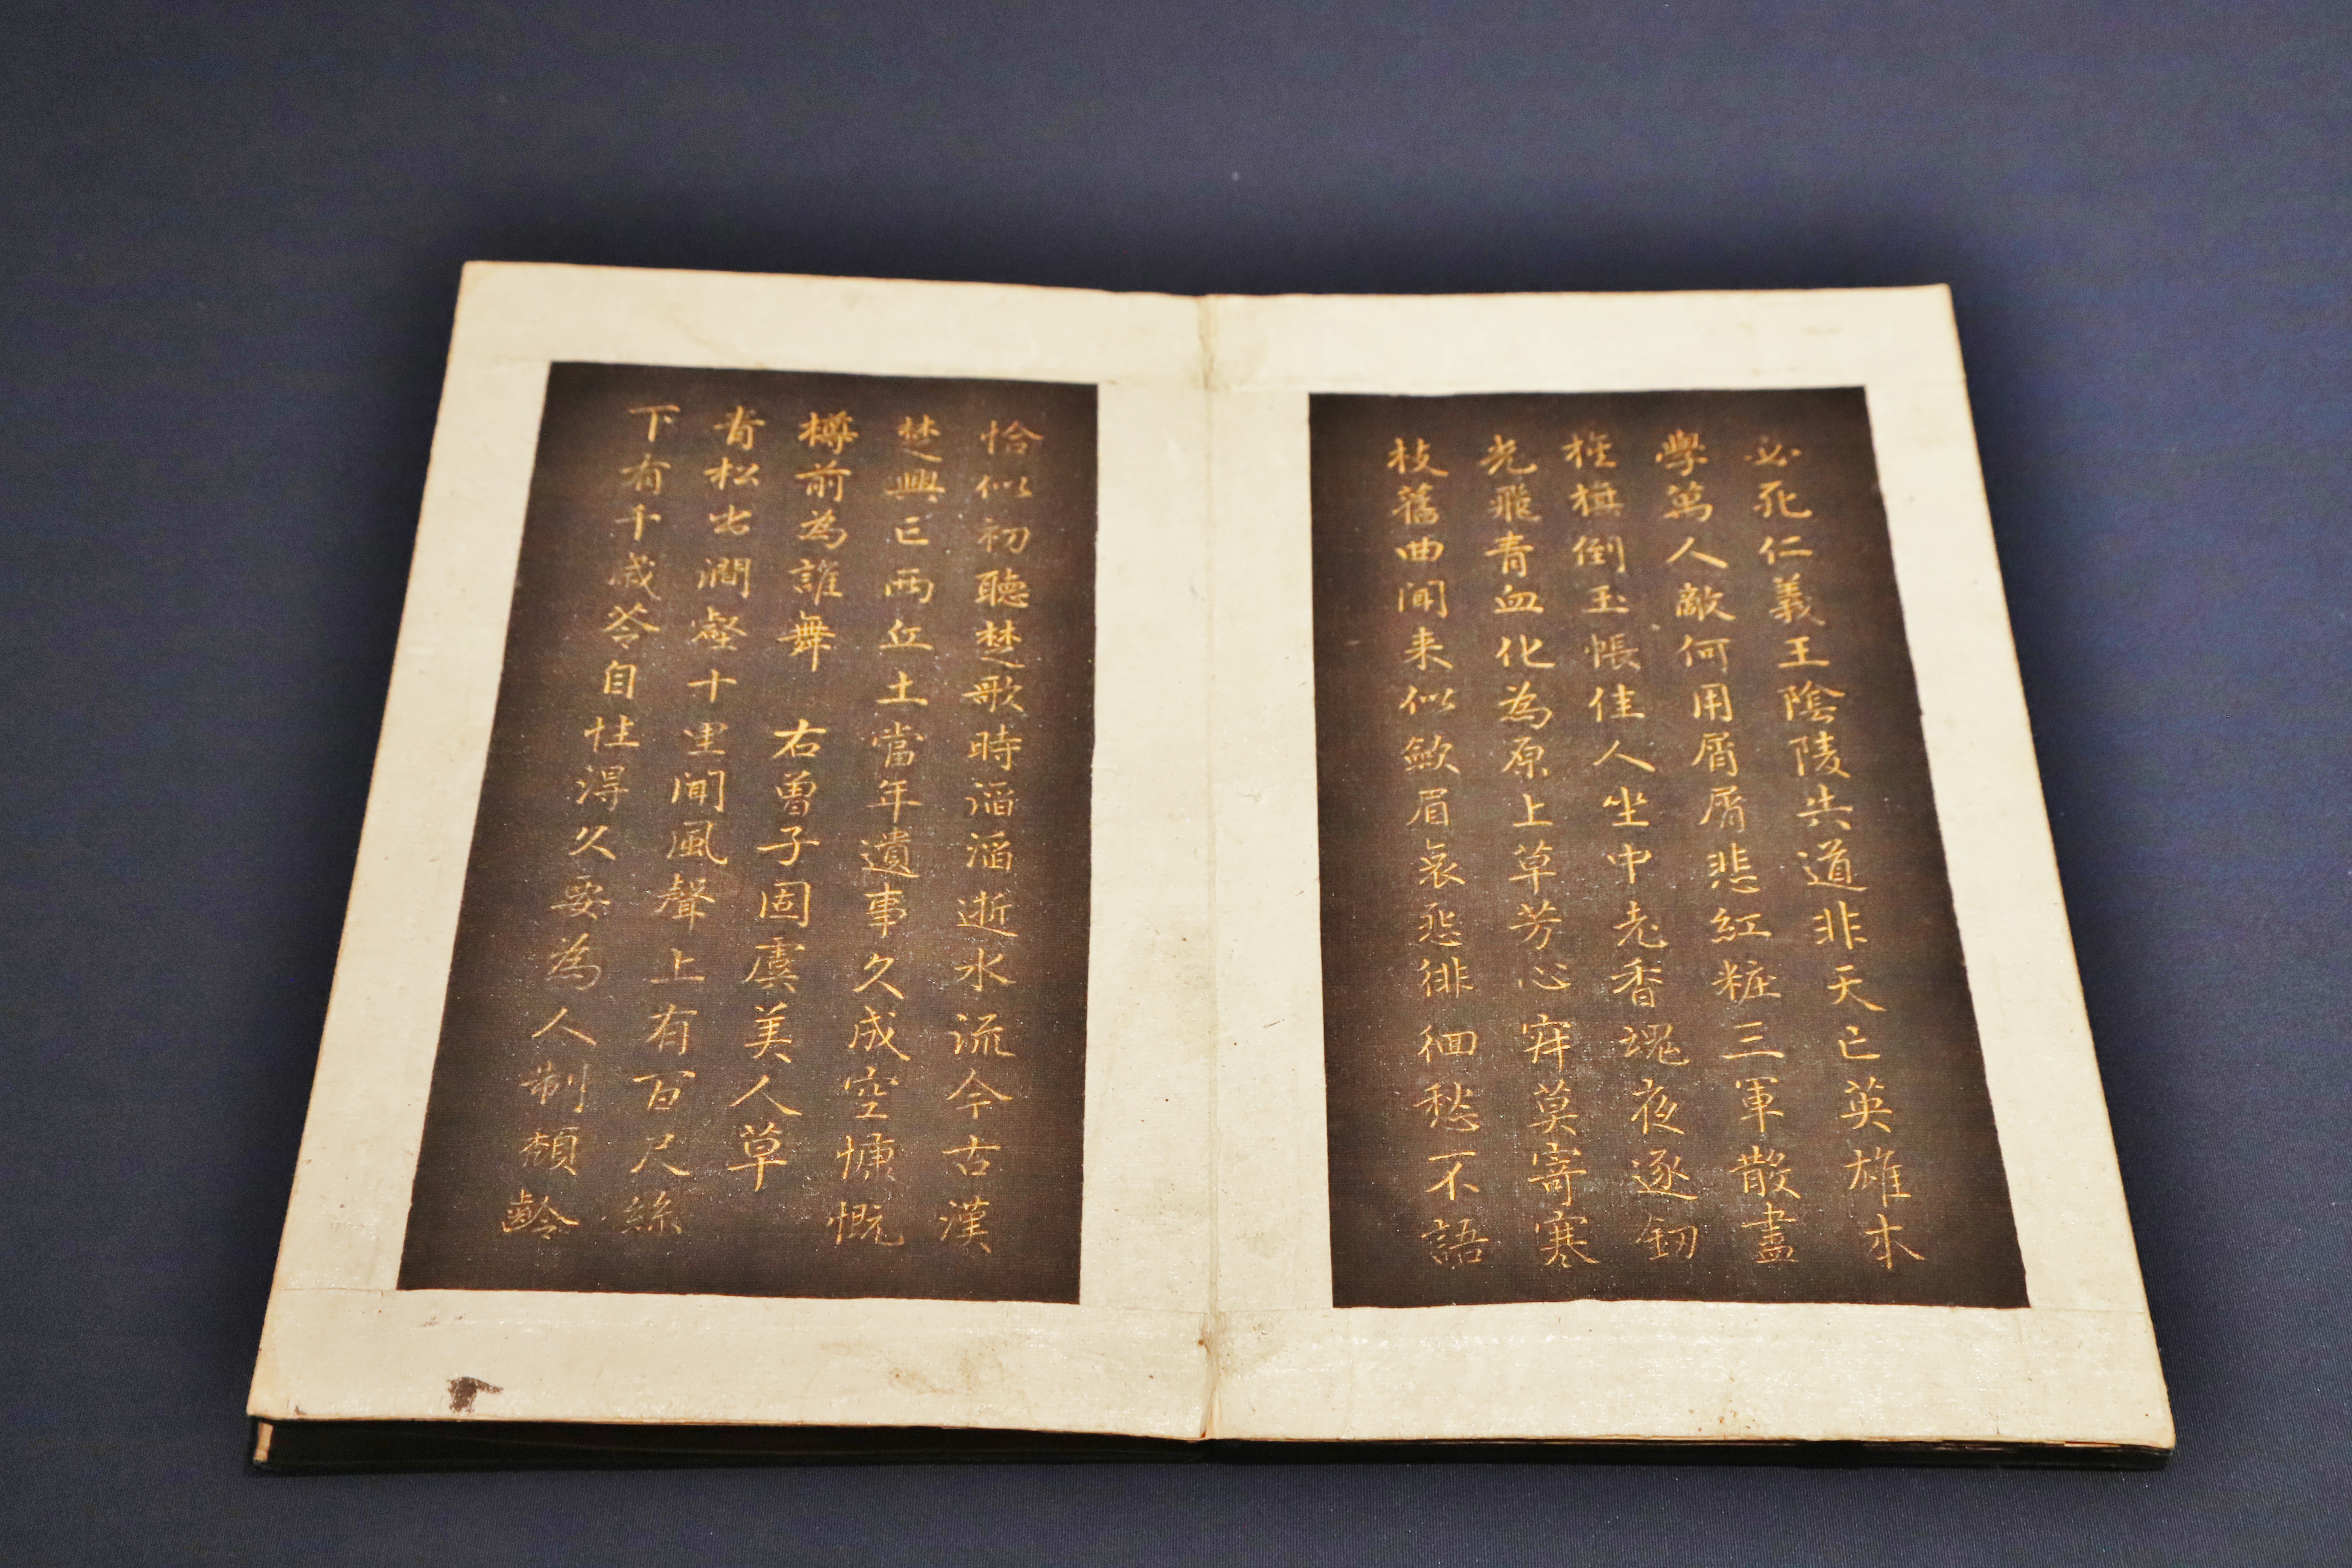 必死仁義王陰陵共道非天亡英雄本
學萬人敵何用屑屑悲紅粧三軍散盡
旌旗倒玉帳佳人坐中老香魂夜逐釼
光飛青血化為原上草芳心寂莫寄寒
枝舊曲聞来似斂眉哀怨徘徊愁不語
恰似初聽楚歌時滔滔逝水流今古漢
楚興亡兩丘土當年遺事久成空慷慨
樽前為誰舞　右曾子固虞美人草
青松出澗壑十里聞風聲上有百尺絲
下有千歲苓自性得久要為人制頹齡